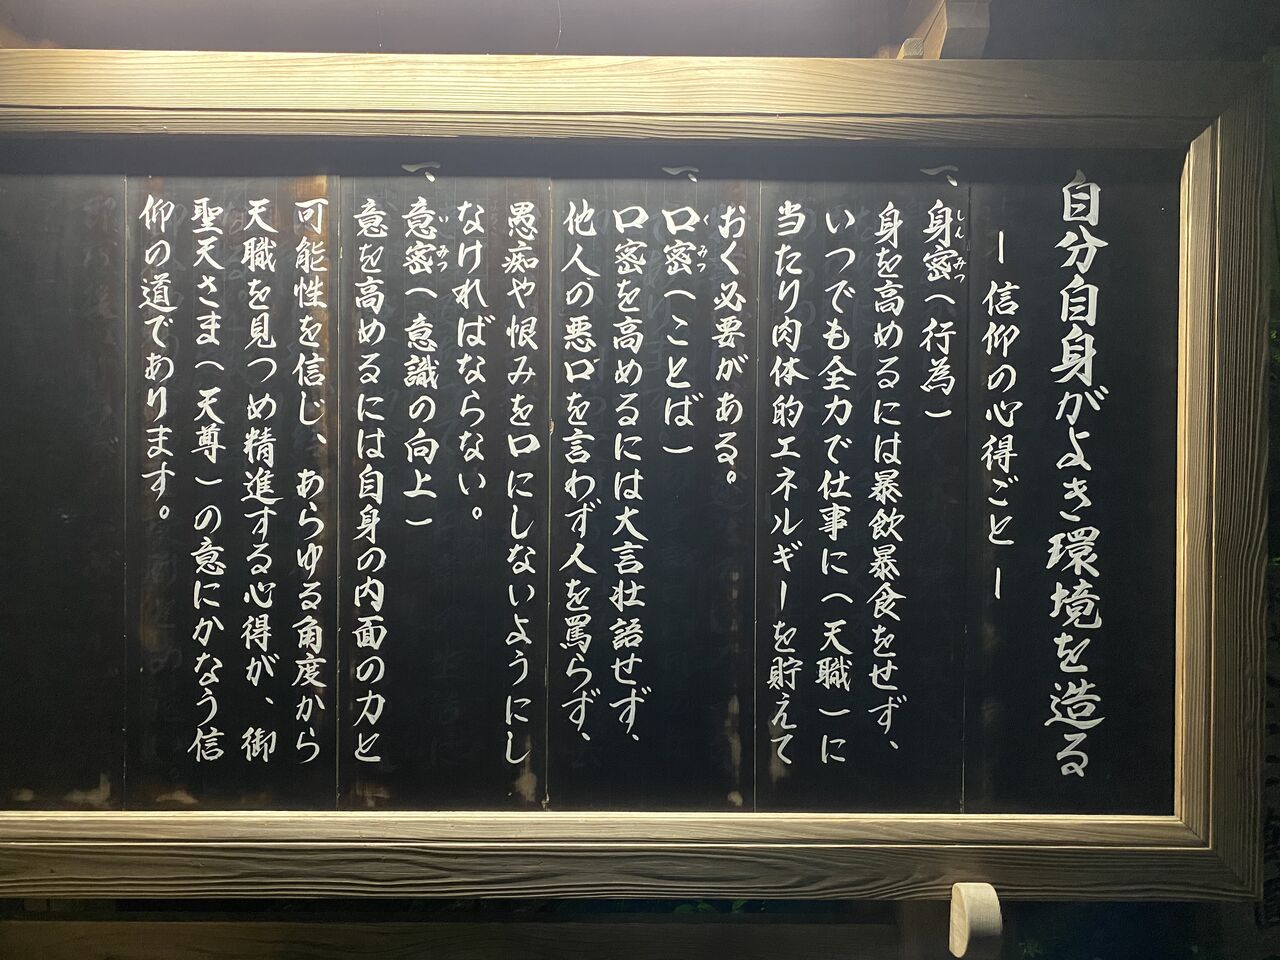 自分自身がよき環境を造る
ー信仰の心得ごとー
一、身密（行為）
しんみつ
身を高めるには暴飲暴食をせず、
いつでも全力で仕事に（天職）に
当たり肉体的エネルギーを貯えて
おく必要がある。
一、口密（ことば）
くみつ
口密を高めるには大言壮語せず、
他人の悪口を言わず人を罵らず、
愚痴や恨みを口にしないようにし
なければならない。
一、意密（意識の向上）
いみつ
意を高めるには自身の内面の力と
可能性を信じ、あらゆる角度から
天職を見つめ精進する心得が、御
聖天さま（天尊）の意にかなう信
仰の道であります。